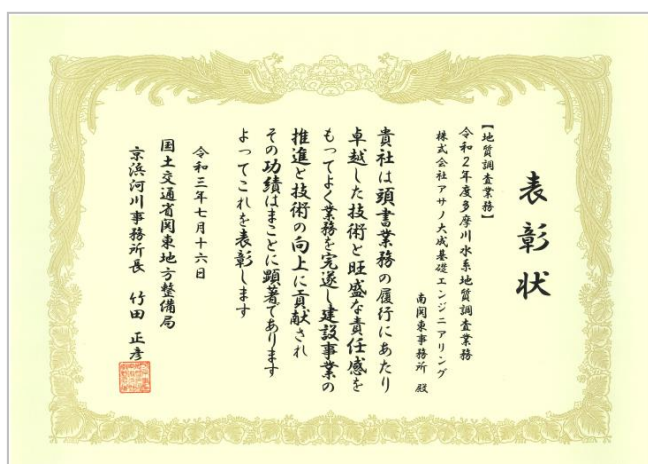 表彰状
【地質調査業務】
令和2年度多摩川水系地質調査業務
株式会社アサノ大成基礎エンジニアリング
南関東事務所 殿
貴社は頭書業務の履行にあたり
卓越した技術と旺盛な責任感を
もってよく業務を完遂し建設事業の
推進と技術の向上に貢献され
その功績はまことに顕著であります
よってこれを表彰します
令和三年七月十六日
国土交通省関東地方整備局
京浜河川事務所長 竹田 正彦